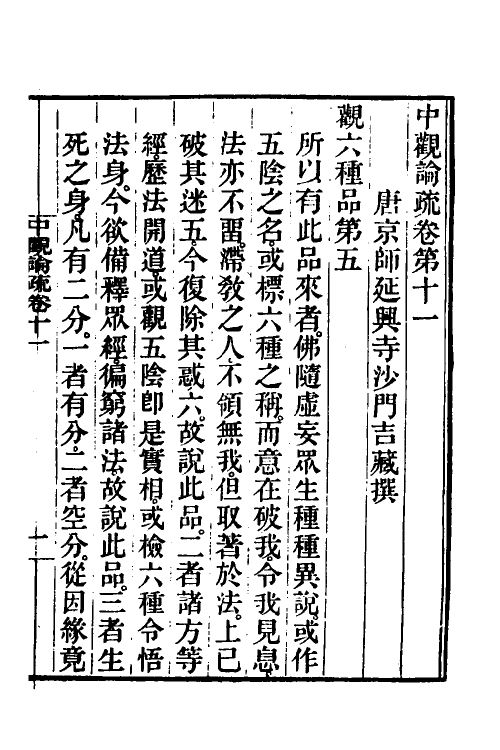 中觀論疏卷第十一
唐京師延興寺沙門吉藏撰
觀六種品第五
所以有此品來者。佛隨虛妄眾生種種異說。或作
五陰之名。或標六種之稱。而意在破我。令我見息。
法亦不習。滯教之人不領無我。但取著於法。上已
破其迷五。今復除其惑六。故說此品。二者諸方等
經。歷法開道。或觀五陰卽是實相。或檢六種令悟
法身。今欲備釋眾經。徧窮諸法。故說此品。三者生
死之身。凡有二分。一者有分。二者空分。從因緣竟
中觀論疏卷十一
一